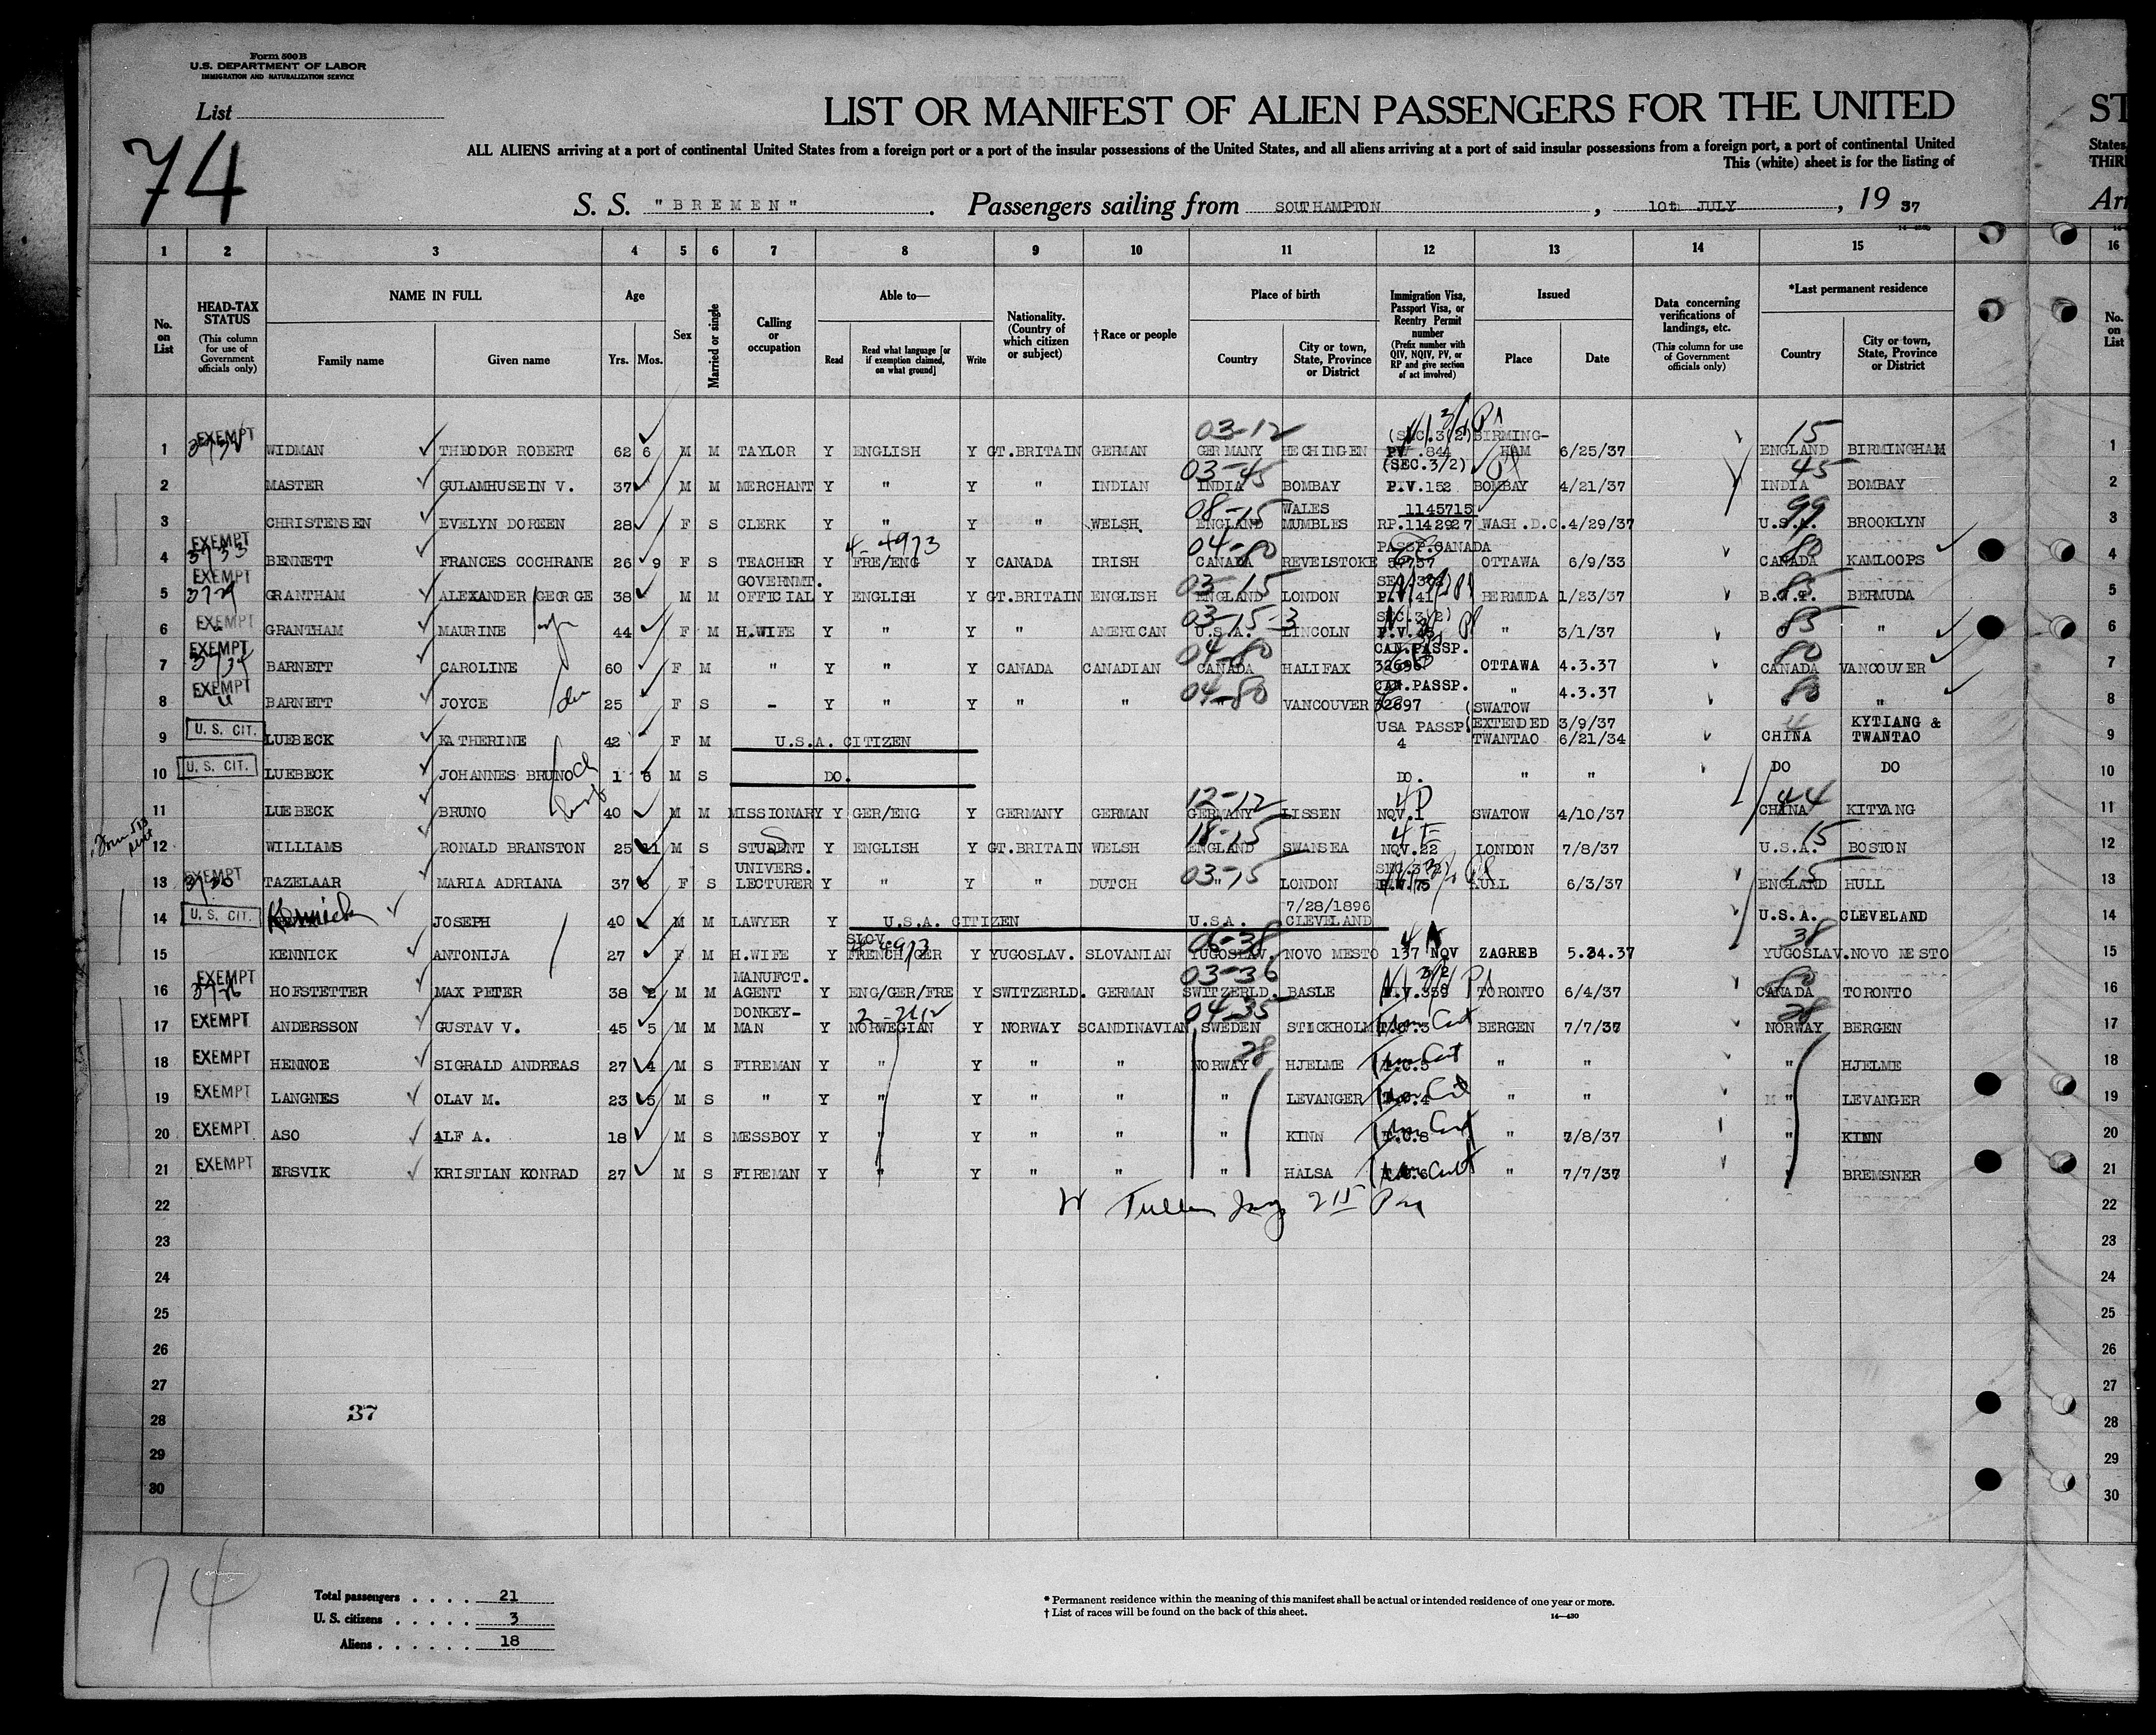 Form 500 B
U.S. DEPARTMENT OF LABOR
IMMIGRATION AND NATURALIZATION SERVICE
List
74
LIST OR MANIFEST OF ALIEN PASSENGERS FOR THE UNITED ST
ALL ALIENS arriving at a port of continental United States from a foreign port or a port of the insular possessions of the United States, and all aliens arriving at a port of said insular possessions from a foreign port, a port of continental United States,
This (white) sheet is for the listing of THIR
S. S. "BREMEN". Passengers sailing from SOUTHAMPTON, 10th JULY, 1937 Arr
1 2 3 4 5 6 7 8 9 10 11 12 13 14 15 16
No. on List
HEAD-TAX STATUS (This column for use of Government officials only)
NAME IN FULL Family name Given name
Age Yrs. Mos.
Sex
Married or single
Calling or occupation
Able to— Read Read what language [or if exemption claimed, on what ground] Write
Nationality. (Country of which citizen or subject)
† Race or people
Place of birth Country City or town, State, Province or District
Immigration Visa, Passport Visa, or Reentry Permit number (Prefix number with QIV, NQIV, PV, or RP and give section of act involved)
Issued Place Date
Data concerning verifications of landings, etc. (This column for use of Government officials only)
*Last permanent residence Country City or town, State, Province or District
No. on List
1 EXEMPT WIDMAN THEODOR ROBERT 62 6 M M TAYLOR Y ENGLISH Y GT.BRITAIN GERMAN 03-12 GERMANY HECHINGEN (SEC.3(2) PV .844 BIRMING-HAM 6/25/37 15 ENGLAND BIRMINGHAM 1
2 MASTER GULAMHUSEIN V. 37 M M MERCHANT Y " Y " INDIAN 03-45 INDIA BOMBAY (SEC.3/2) P.V.152 BOMBAY 4/21/37 45 INDIA BOMBAY 2
3 CHRISTENSEN EVELYN DOREEN 28 F S CLERK Y " Y " WELSH 08-15 ENGLAND WALES MUMBLES 1145715 RP.1142927 WASH.D.C. 4/29/37 99 U.S.A. BROOKLYN 3
4 EXEMPT 3733 BENNETT FRANCES COCHRANE 26 9 F S TEACHER Y 4-4973 FRE/ENG Y CANADA IRISH 04-80 CANADA REVELSTOKE PASSP.CANADA OTTAWA 6/9/33 80 CANADA KAMLOOPS 4
5 EXEMPT GRANTHAM ALEXANDER GEORGE 38 M M GOVERNMT. OFFICIAL Y ENGLISH Y GT.BRITAIN ENGLISH 03-15 ENGLAND LONDON BERMUDA 1/23/37 85 B.W.I. BERMUDA 5
6 EXEMPT GRANTHAM MAURINE wife 44 F M H.WIFE Y " Y " AMERICAN 03-15-3 U.S.A. LINCOLN SEC.3(2) " 3/1/37 85 " " 6
7 EXEMPT BARNETT CAROLINE 60 F M " Y " Y CANADA CANADIAN 04-80 CANADA HALIFAX CAN.PASSP. 32696 OTTAWA 4.3.37 80 CANADA VANCOUVER 7
8 EXEMPT BARNETT JOYCE dau 25 F S - Y " Y " " 04-80 " VANCOUVER CAN.PASSP. 32697 " 4.3.37 80 " " 8
9 U.S. CIT. LUEBECK KATHERINE 42 F M U.S.A. CITIZEN USA PASSP. 4 (SWATOW (EXTENDED 3/9/37 TWANTAO 6/21/34 CHINA KYTIANG & TWANTAO 9
10 U.S. CIT. LUEBECK JOHANNES BRUNO ch 1 8 M S DO. DO. " " DO DO 10
11 LUEBECK BRUNO 40 M M MISSIONARY Y GER/ENG Y GERMANY GERMAN 12-12 GERMANY LISSEN NQV.1 SWATOW 4/10/37 44 CHINA KITYANG 11
12 WILLIAMS RONALD BRANSTON 25 11 M S STUDENT Y ENGLISH Y GT.BRITAIN WELSH 18-15 ENGLAND SWANSEA NQV.22 LONDON 7/8/37 15 U.S.A. BOSTON 12
13 EXEMPT TAZELAAR MARIA ADRIANA 37 F S UNIVERS. LECTURER Y " Y " DUTCH 03-15 " LONDON HULL 6/3/37 15 ENGLAND HULL 13
14 U.S. CIT. Kennick JOSEPH 40 M M LAWYER Y U.S.A. CITIZEN U.S.A. 7/28/1896 CLEVELAND U.S.A. CLEVELAND 14
15 KENNICK ANTONIJA 27 F M H.WIFE Y SLOV. FRENCH/GER Y YUGOSLAV. SLOVANIAN 06-38 YUGOSLAV. NOVO MESTO 137 NQV ZAGREB 5.24.37 38 YUGOSLAV. NOVO MESTO 15
16 EXEMPT HOFSTETTER MAX PETER 38 2 M M MANUFCT. AGENT Y ENG/GER/FRE Y SWITZERLD. GERMAN 03-36 SWITZERLD. BASLE TORONTO 6/4/37 80 CANADA TORONTO 16
17 EXEMPT ANDERSSON GUSTAV V. 45 5 M M DONKEY-MAN Y NORWEGIAN Y NORWAY SCANDINAVIAN 04-35 SWEDEN STOCKHOLM BERGEN 7/7/37 28 NORWAY BERGEN 17
18 EXEMPT HENNOE SIGRALD ANDREAS 27 4 M S FIREMAN Y " Y " " 28 NORWAY HJELME " " " HJELME 18
19 EXEMPT LANGNES OLAV M. 23 5 M S " Y " Y " " " LEVANGER " " " LEVANGER 19
20 EXEMPT ASO ALF A. 18 M S MESSBOY Y " Y " " " KINN " 7/8/37 " KINN 20
21 EXEMPT ERSVIK KRISTIAN KONRAD 27 M S FIREMAN Y " Y " " " HALSA " 7/7/37 " BREMSNER 21
22 22
23 23
24 24
25 25
26 26
27 27
28 37 28
29 29
30 30
74
Total passengers . . . . 21
U. S. citizens . . . . . 3
Aliens . . . . . . 18
* Permanent residence within the meaning of this manifest shall be actual or intended residence of one year or more.
† List of races will be found on the back of this sheet.
14—430